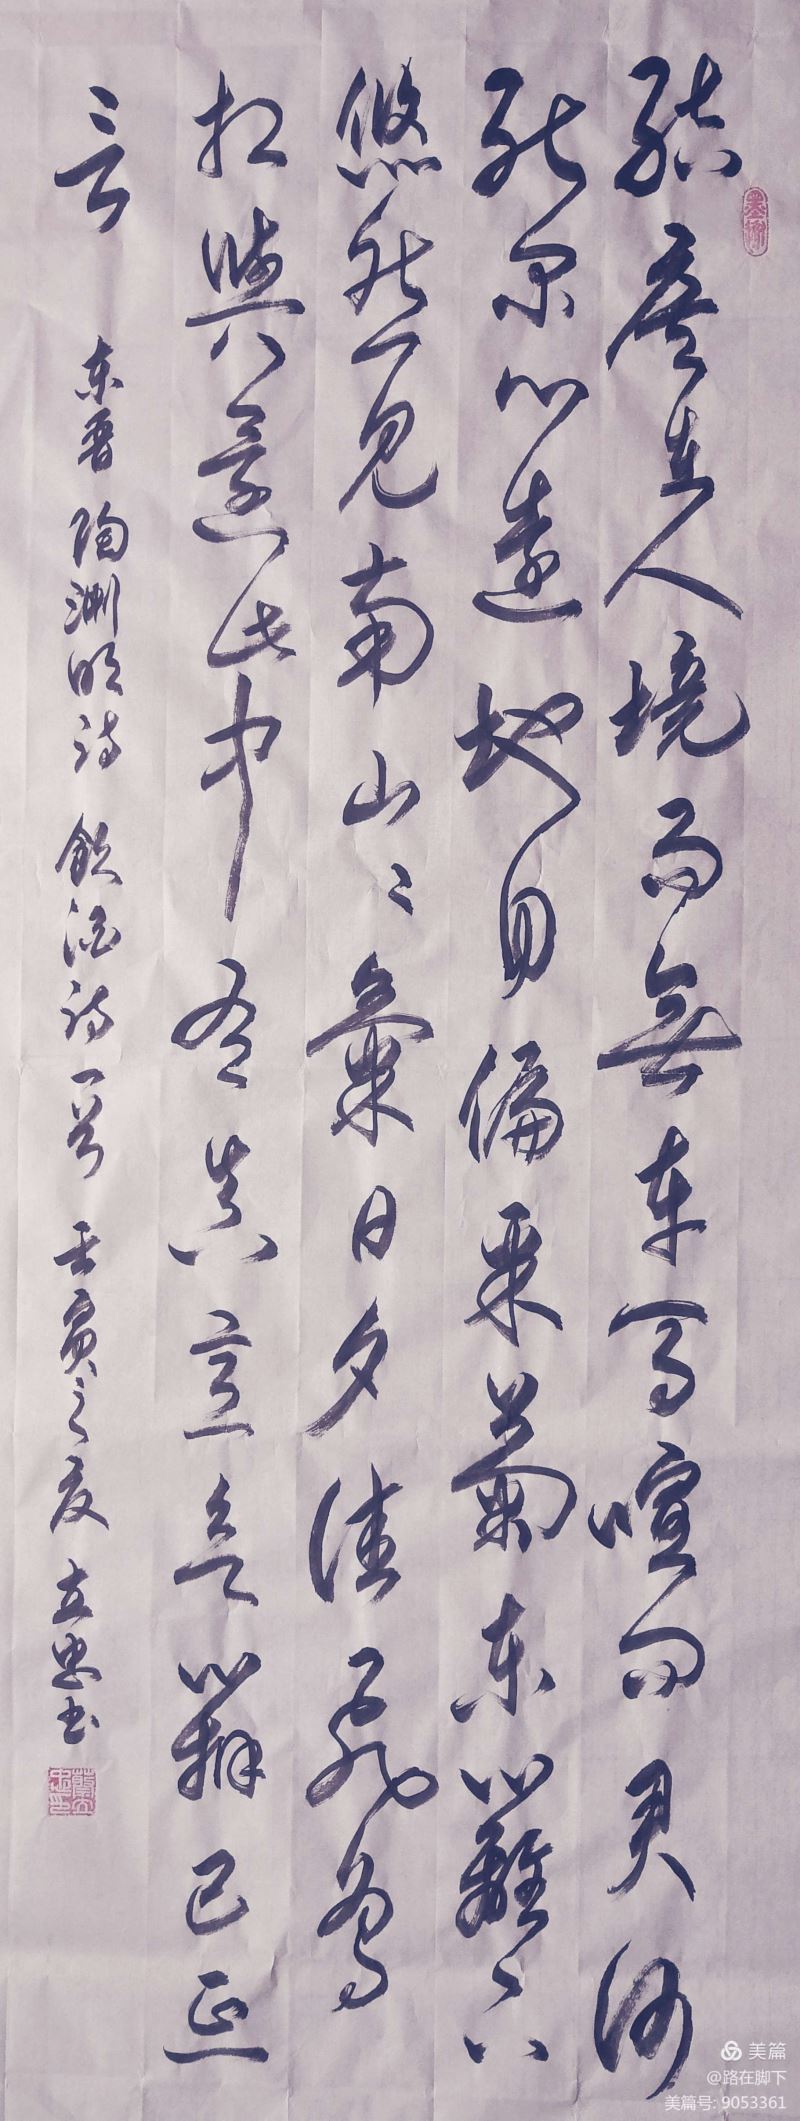 結廬在人境而無车马喧问君何
能尔心远地自偏采菊东籬下
悠然见南山〻氣日夕佳飛鸟
相與還此中有真意欲辩已忘
言
东晋 陶渊明诗 飲酒诗一首 壬寅之夏 立忠书
美篇
@路在脚下
美篇号: 9053361